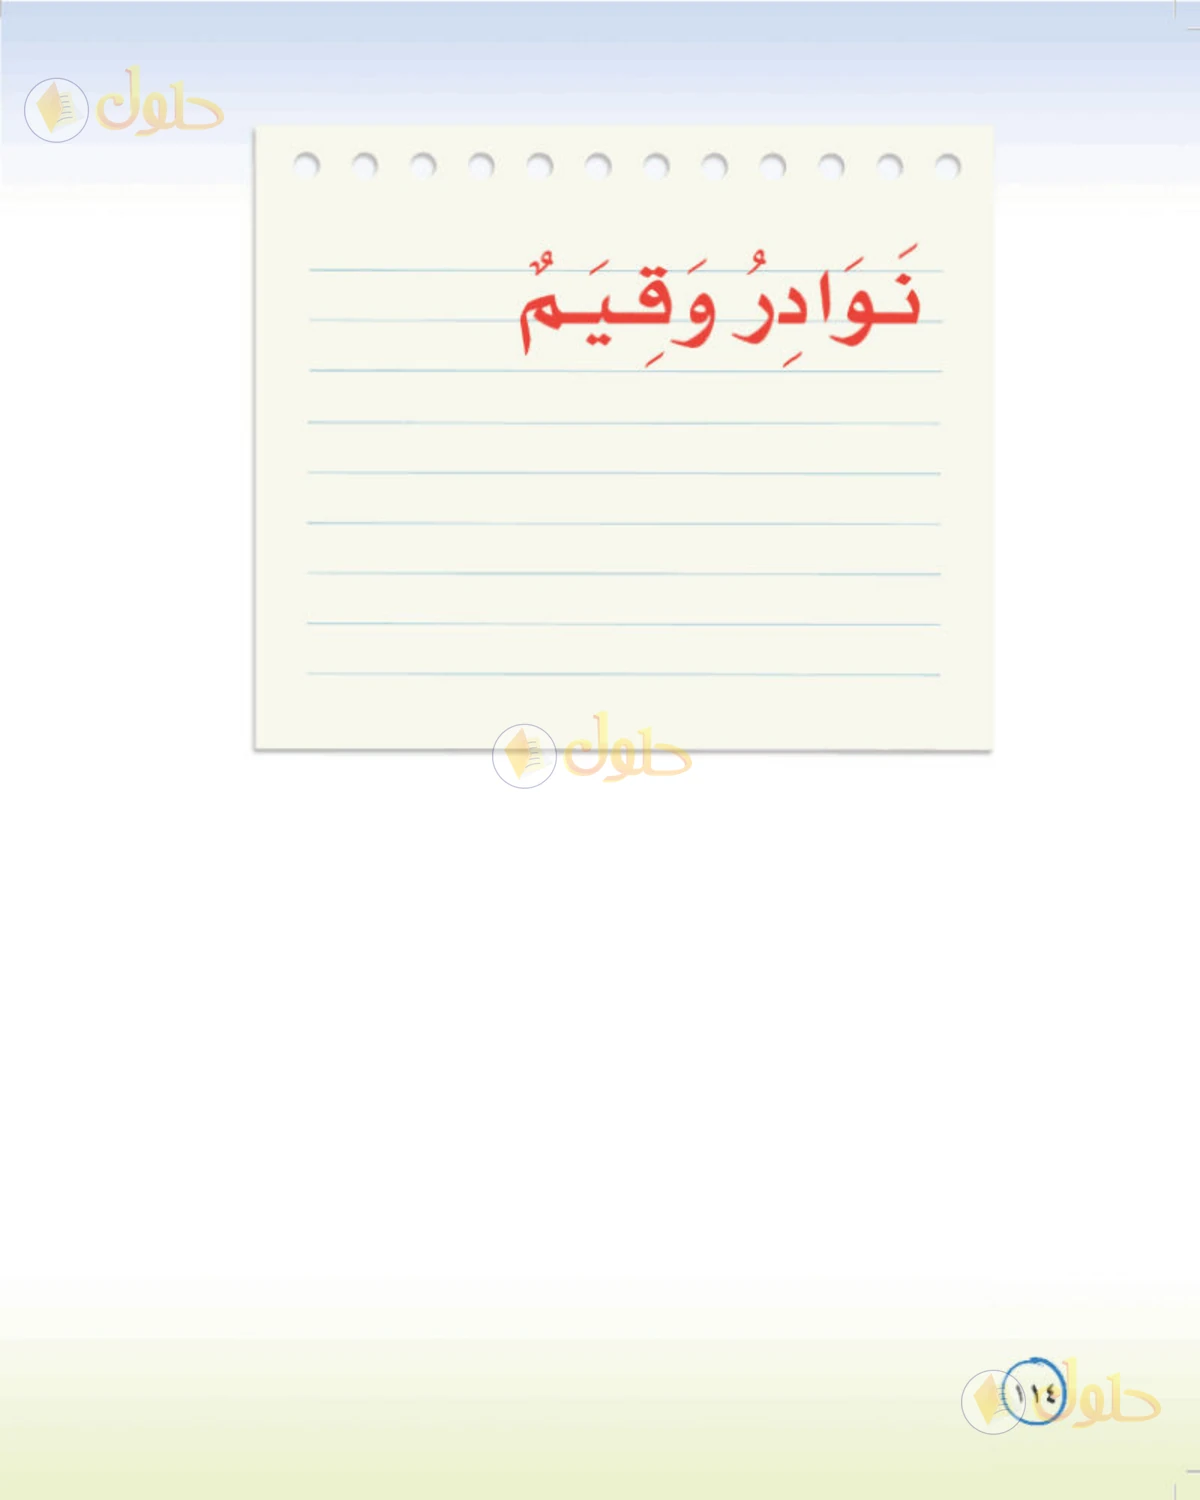 حلول
نَوَادِرُ وَقِيَمٌ
حلول
حلول
١١٤